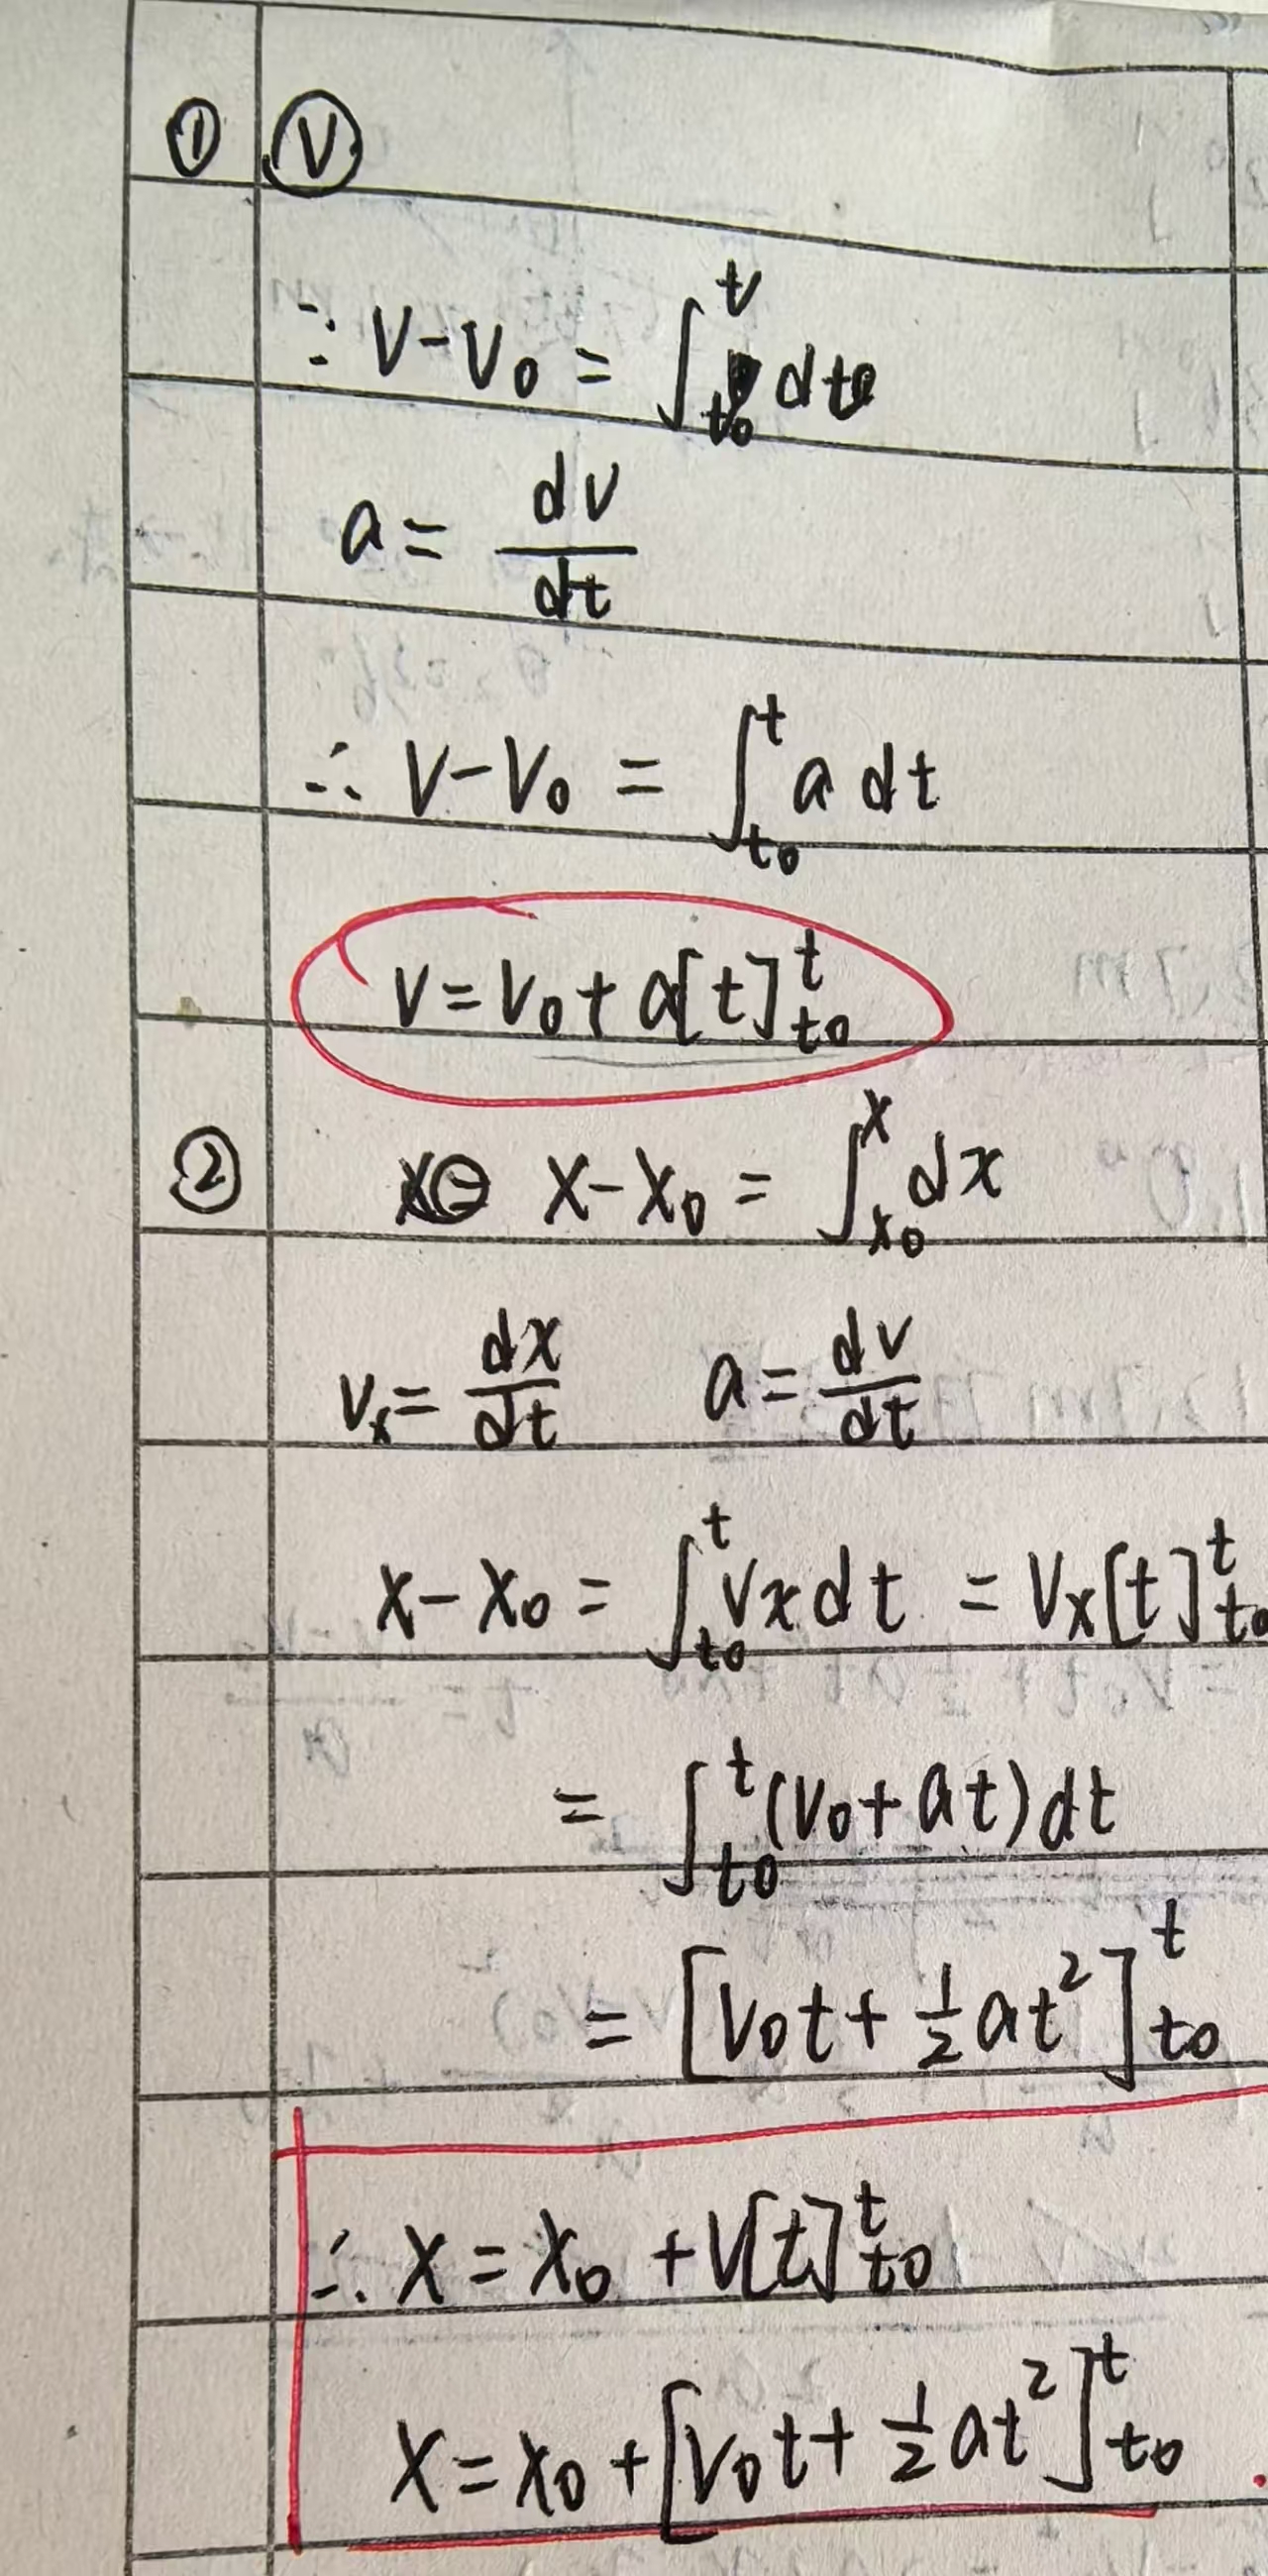 ① Ⓥ
∵ V-V₀ = ∫_{t₀}^{t} dt
a = dv/dt
∴ V-V₀ = ∫_{t₀}^{t} a dt
V = V₀ + a[t]_{t₀}^{t}
② X-X₀ = ∫_{x₀}^{x} dx
Vₓ = dx/dt a = dv/dt
X-X₀ = ∫_{t₀}^{t} Vx dt = Vx[t]_{t₀}^{t}
= ∫_{t₀}^{t} (V₀+at)dt
= [V₀t + ½at²]_{t₀}^{t}
∴ X = X₀ + V[t]_{t₀}^{t}
X = X₀ + [V₀t + ½at²]_{t₀}^{t}